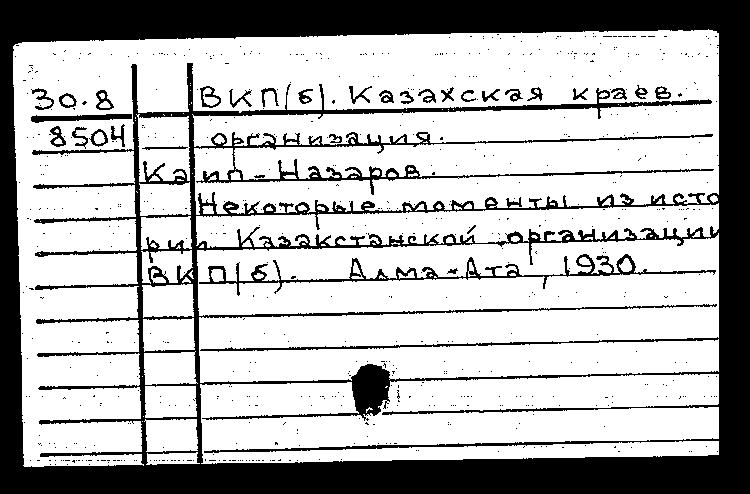 30.8 ВКП(б). Казахская краев.
8504 организация.
Каип-Назаров.
Некоторые моменты из исто
рии Казакстанской организации
ВКП(б). Алма-Ата, 1930.